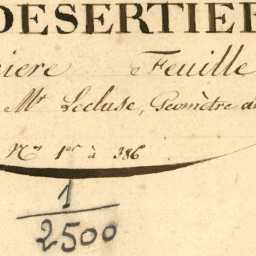 DESERTIER
iere Feuille
Mr Lecluse, Geomètre d
Nos 1er à 386
1
2500